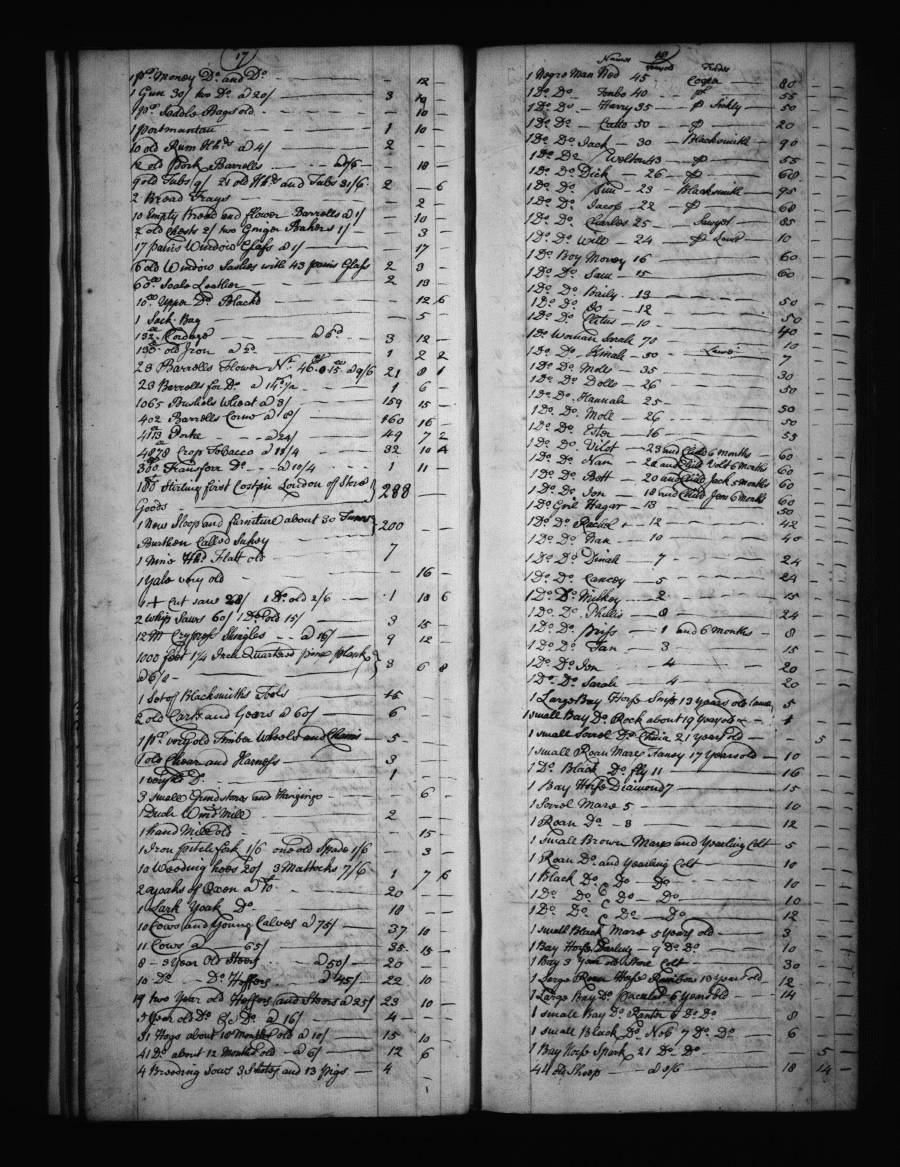 17
1 pr. Money Do. and Do. — — 12 —
1 Gun 30/ two Do. a 20/ — 3 10 —
1 pr. Saddle Bags old — — 10 —
1 portmantau — 1 10 —
10 old Rum Hhds a 4/ — 2 —
12 old Pork Barrells — — 18 —
9 old Tubs 9/ 21 old Hhds and Tubs 31/6 2 — 6
2 Bread Trays — — 2 —
10 Empty Bread and flower Barrells a 1/ — 10 —
2 old Chests 2/ two Ginger Bakers 1/ — 3 —
17 pains Window Glass a 1/ — — 17
6 old Window Sashes with 43 pains Glass 2 3 —
Soale Leather — 2 13 —
Upper Do. Blackd — — 12 6
1 Sack Bag — — 5 —
Cordage — a 6d — 3 12 —
old Iron a 2d — 1 2 2
23 Barrells Flower Nt. 21 8 1
23 Barrells for Do. a — 1 6 —
1065 Bushels Wheat a 3/ — 159 15 —
402 Barrells Corn a 8/ — 160 16 —
4113 Porke — a 24/ — 49 7 2
4878 Crop Tobacco a — 32 10 4
Transferr Do. — a 10/4 — 1 11 —
Stirling first Cost in London of Store 288 —
Goods
1 New Sloop and furniture about 30 Tunns 200 — —
Burthen Called Surrey
Hhd. Flatt old 7
1 Yale very old — — 16 —
4 + Cut saw 28/ 1 Do. old 2/6 — 1 10 6
2 Whip Saws 60/ 1 Do. old 15/ 3 15 —
12 M Cypress Shingles — a 16/ — 9 12 —
1000 foot 1 1/4 Inch Quartered pine plank 3 6 8
a 6/8 —
1 Set of Blacksmiths Tools 15 —
2 old Carts and Geers a 60/ — 6 —
1 pr. very old Timber Wheels and Chains — 5 —
1 old Chear and Harness — 3 —
1 very old Do. — 1 —
3 small Grindstones and Hangings — — 6 —
Wind Mill — 2 —
1 hand Mill old — — 15 —
1 Iron pitch fork 1/6 one old Spade 1/6 — 3 —
10 Weeding hoes 20/ 3 Mattocks 7/6 1 7 6
2 yoaks of Oxen a — 20 —
1 Yoak Do. — 18 — —
10 Cows and Young Calves a 75/ — 37 10 —
11 Cows a — 65/ — 35 15 —
8 — 3 year Old Steers — a 50/ — 20 — —
10 Do. — Do. Heffers — a 45/ — 22 10
19 two Year old Heffers and Steers a 25/ 23 10 —
5 Year old Do. & Do. a 16/ — 4 — —
31 Hogs about 18 Months old a 10/ — 15 10
41 Do. about 12 Months old — a 6/ — 12 6
4 Breeding Sows 3 Shotes and 13 pigs — 4
18
Names Trades
1 Negro Man Ned 45 — Cooper — 80 — —
1 Do. Do. — Tombo 40 — — 55 — —
1 Do. Do. — Harry 35 — Sickly — 50 — —
1 Do. Do. — Catto 50 — — 20 — —
1 Do. Do. Jack — 30 — Blacksmith — 90 — —
1 Do. Do. Welton 43 — — 55 — —
1 Do. Do. Dick — 26 — — 60 — —
1 Do. Do. Sim — 23 — Blacksmith — 95 — —
1 Do. Do. Jacop — 22 — — 60 — —
1 Do. Do. Charles 25 — Sawyer — 85 — —
1 Do. Do. Will — 24 — Lame — 10 — —
1 Do. Boy Morey 16 — 60 — —
1 Do. Do. Sam — 15 — 60 — —
1 Do. Do. Baily — 13 —
1 Do. Do. — 12 — 50 — —
1 Do. Do. Cletus — 10 — 50 — —
1 Do. Woman Sarah 70 — 40 — —
1 Do. Do. Binah — 50 — Lame — 10 — —
1 Do. Do. Moll — 35 — 7 — —
1 Do. Do. Dolle — 26 — 30 — —
1 Do. Do. Hannah 25 — 50 — —
1 Do. Do. Moll 26 — 50 — —
1 Do. Do. Ester — 16 — 50 — —
1 Do. Do. Vilot — 23 and Child 6 months — 60 — —
1 Do. Do. Nan — 22 and Child Volt 6 Months 60 — —
1 Do. Do. Bett — 20 and Child Jack 5 months 60 — —
1 Do. Do. Jen — 18 and Child Jem 6 Months 60 — —
1 Do. Girl Hagar — 13 — 50 — —
1 Do. Do. Rachel — 12 — 42 — —
1 Do. Do. Nan — 10 — 40 — —
1 Do. Do. Dinah — 7 — 24 — —
1 Do. Do. Cancey — 5 — 24 — —
1 Do. Do. Milkey — 2 — 15 — —
1 Do. Do. Phillis — 8 — 24 — —
1 Do. Do. Briss — 1 and 6 months — 8 — —
1 Do. Do. Fan — 3 — 15 — —
1 Do. Do. Jen — 4 — 20 — —
1 Do. Do. Sarah — 4 — 20 — —
1 Large Bay Horse Snip 13 Years old lame 5 — —
1 small Bay Do. Rock about 19 Years old — 4 — —
1 small Sorrel Do. 21 Years old — — 5 —
1 small Roan Mare Fancy 17 Years old — 10 — —
1 Do. Black Do. fly 11 — 16 — —
1 Bay Horse Diamond 7 — 15 — —
1 Sorrel Mare 5 — 10 — —
1 Roan Do. — 8 — 12 — —
1 small Brown Mare and Yearling Colt — 5 — —
1 Roan Do. and yearling Colt — 10 — —
1 Black Do. Do. Do. — 10 — —
1 Do. Do. & Do. Do. — 10 — —
1 Do. Do. & Do. Do. — 12 — —
1 small Black Mare 5 Years old — 3 — —
1 Bay Horse Darling — 9 Do. Do. — 10 — —
1 Bay 3 Year old Colt — 30 — —
1 Large Roan Horse 13 Years old — 12 — —
1 Large Bay Do. 6 Years old — 14 — —
1 small Bay Do. Ranter 8 Do. Do. — 8 — —
1 small Black Do. No6 7 Do. Do. — 6 — —
1 Bay Horse Spark 21 Do. Do. — — 5 —
44 old Sheep — a 8/6 — 18 14 —